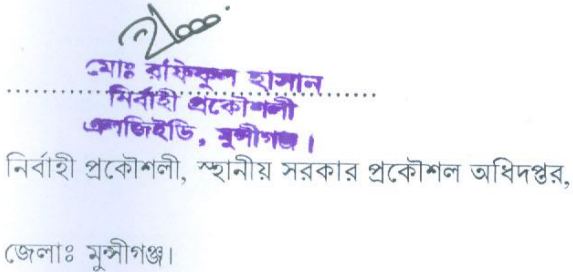 মোঃ রফিকুল হাসান
নির্বাহী প্রকৌশলী
এলজিইডি, মুন্সীগঞ্জ।
নির্বাহী প্রকৌশলী, স্থানীয় সরকার প্রকৌশল অধিদপ্তর,
জেলাঃ মুন্সীগঞ্জ।